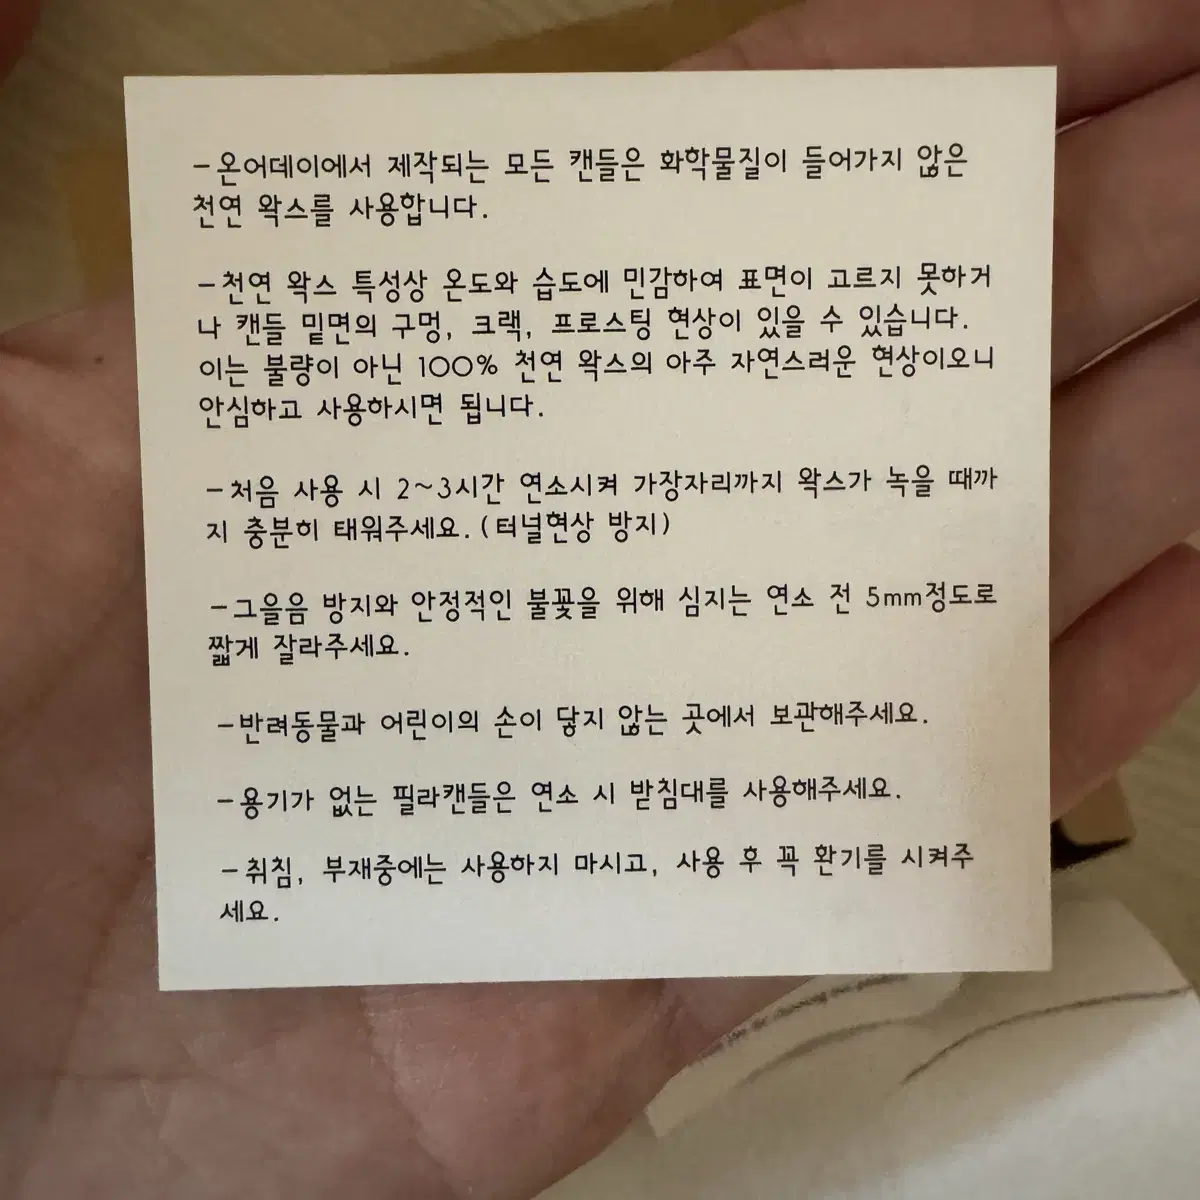 -온어데이에서 제작되는 모든 캔들은 화학물질이 들어가지 않은
천연 왁스를 사용합니다.
-천연 왁스 특성상 온도와 습도에 민감하여 표면이 고르지 못하거
나 캔들 밑면의 구멍, 크랙, 프로스팅 현상이 있을 수 있습니다.
이는 불량이 아닌 100% 천연 왁스의 아주 자연스러운 현상이오니
안심하고 사용하시면 됩니다.
-처음 사용 시 2~3시간 연소시켜 가장자리까지 왁스가 녹을 때까
지 충분히 태워주세요.(터널현상 방지)
-그을음 방지와 안정적인 불꽃을 위해 심지는 연소 전 5mm정도로
짧게 잘라주세요.
-반려동물과 어린이의 손이 닿지 않는 곳에서 보관해주세요.
-용기가 없는 필라캔들은 연소 시 받침대를 사용해주세요.
-취침, 부재중에는 사용하지 마시고, 사용 후 꼭 환기를 시켜주
세요.